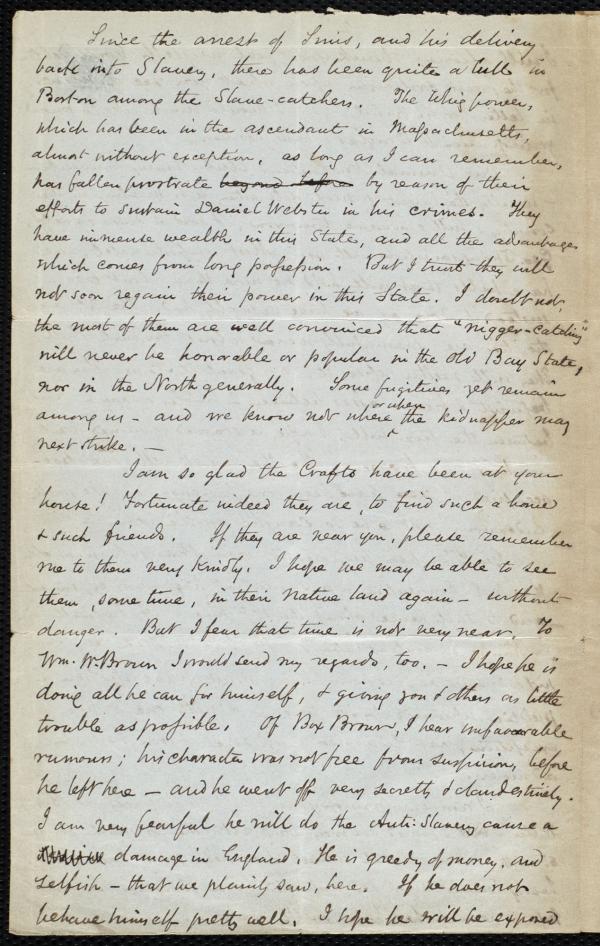 Since the arrest of Sims, and his delivery
back into Slavery, there has been quite a lull in
Boston among the Slave-catchers. The Whig power,
which has been in the ascendant in Massachusetts,
almost without exception, as long as I can remember,
has fallen prostrate beyond before by reason of their
efforts to sustain Daniel Webster in his crimes. They
have immense wealth in this State, and all the advantages
which comes from long possession. But I trust they will
not soon regain their power in this State. I doubt not,
the most of them are well convinced that "nigger-catching"
will never be honorable or popular in the Old Bay State,
nor in the North generally. Some fugitives yet remain
among us – and we know not where or when the kidnapper may
next strike. –
I am so glad the Crafts have been at your
house! Fortunate indeed they are, to find such a home
& such friends. If they are near you, please remember
me to them very kindly. I hope we may be able to see
them, some time, in their native land again – without
danger. But I fear that time is not very near. To
Wm. W. Brown I would send my regards, too. – I hope he is
doing all he can for himself, & giving you & others as little
trouble as possible. Of Box Brown, I hear unfavorable
rumours; his character was not free from suspicion, before
he left here – and he went off very secretly & clandestinely.
I am very fearful he will do the Anti-Slavery cause a
damage in England. He is greedy of money, and
selfish – that we plainly saw, here. If he does not
behave himself pretty well, I hope he will be exposed